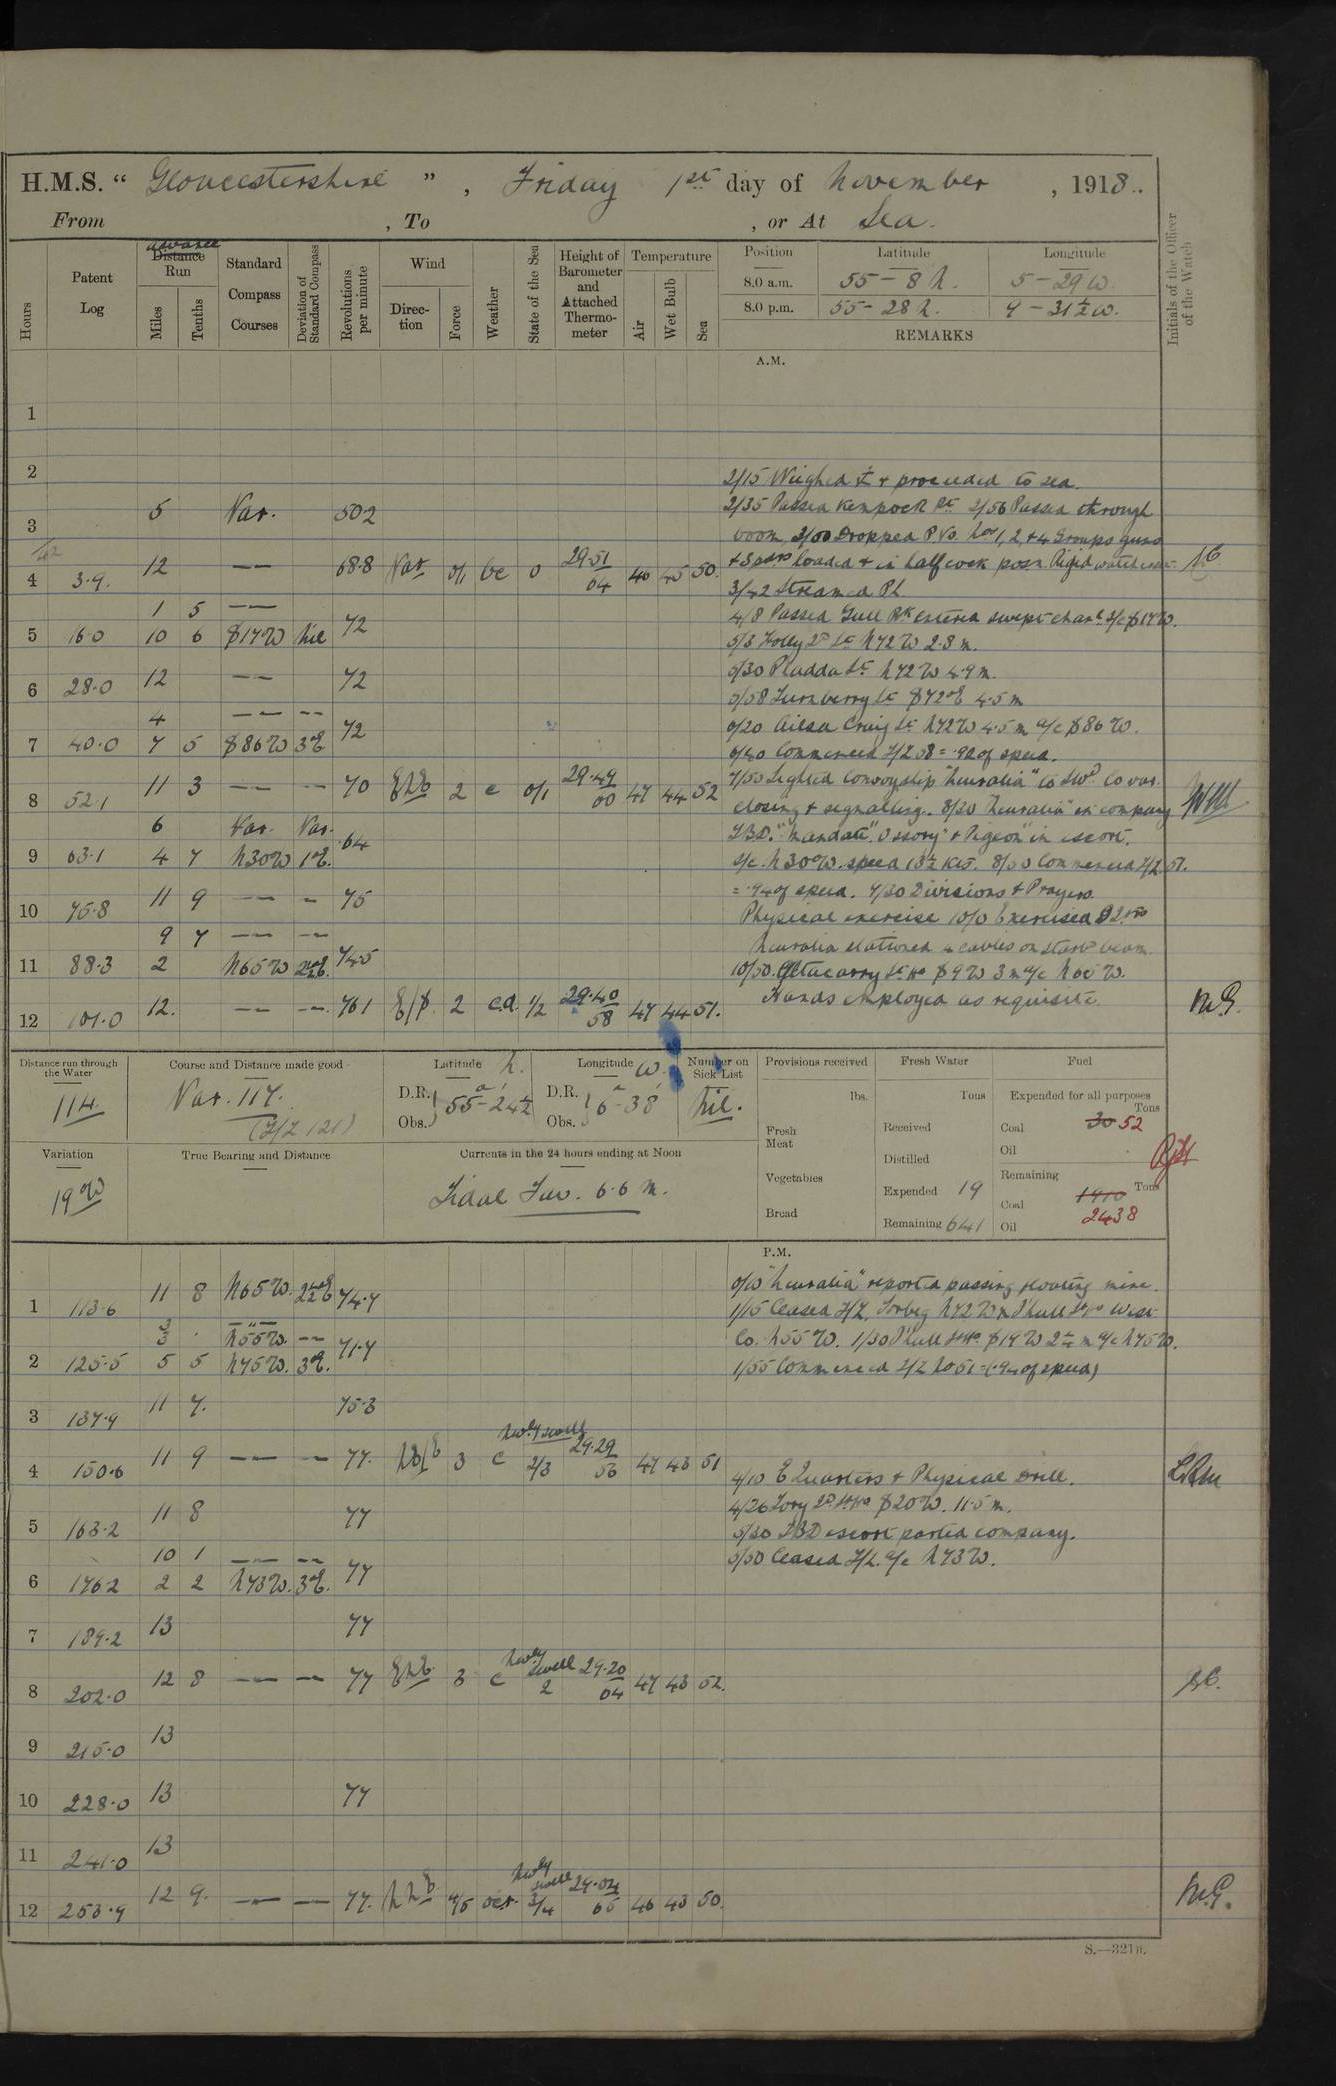 H.M.S. “ Gloucestershire ” , Friday 1st day of November , 1918.
From , To , or At Sea.
Hours
Patent Log
advance
Distance Run
Miles
Tenths
Standard Compass Courses
Deviation of Standard Compass
Revolutions per minute
Wind
Direction
Force
Weather
State of the Sea
Height of Barometer and Attached Thermometer
Temperature
Air
Wet Bulb
Sea
Position Latitude Longitude
8.0 a.m. 55 - 8 N. 5 - 29 W.
8.0 p.m. 55 - 28 N. 9 - 31½ W.
REMARKS
Initials of the Officer of the Watch
A.M.
1
2
2/15 Weighed & proceeded to sea.
3 5 Var. 50.2
2/35 Passed Kempock Pt. 2/56 Passed through
boom, 3/00 Dropped P.Vs. Nos 1, 2, & 4 Groups guns
4 3.9. 12 —— 68.8 Var 0/1 bc 0 29.51 64 46 45 50.
loaded & in half cock posn. Rigid watch
3/42 Streamed P.L.
1 5 ——
4/8 Passed Gull Rk entered swept chanl. S/c S 17 W.
5 16.0 10 6 S17W Nil 72
5/3 Holy Id Lt N72W 2.8 m.
5/30 Pladda Lt. N72W 4.9 m.
6 28.0 12 —— 72
5/58 Turnberry Lt S72°E 4.5 m
4 —— --
6/20 Ailsa Craig Lt N72W 4.5 m a/c S86W.
7 40.0 7 5 S86W 3°E 72
6/40 Commenced Z/Z 58 = .92 of speed.
7/50 Sighted convoy ship "Neuralia" to SWd Co var.
8 52.1 11 3 —— -- 70 ENE 2 c 0/1 29.49 60 47 44 52
closing & signalling. 8/20 "Neuralia" in company
6 Var. Var.
T.B.D. "Mandate", Ossory & Pigeon in escort.
9 63.1 4 7 N30W 1°E. 64
S/c. N30W. speed 13½ Kts. 8/50 Commenced Z/Z 51.
= .94 of speed. 9/30 Divisions & Prayers.
10 75.8 11 9 —— - 75
Physical exercise 10/0 Exercised
9 7 —— --
Neuralia stationed 4 cables on starbd beam.
11 88.3 2 N65W 2½°E. 74.5
10/50. Altacarry Lt Ho S9W 3 m a/c N65W.
Hands employed as requisite.
12 101.0 12. —— --. 76.1 E/S. 2 c.d. 1/2 29.40 58 47 44 51. M.G.
Distance run through the Water
114.
Course and Distance made good
Var. 117.
(Z/Z 121)
Latitude N.
D.R. 55° - 24½'
Obs.
Longitude W.
D.R. 6° - 38'
Obs.
Number on Sick List
Nil.
Provisions received
lbs.
Fresh Meat
Vegetables
Bread
Fresh Water
Tons
Received
Distilled
Expended 19
Remaining 641
Fuel
Expended for all purposes
Tons
Coal 30 52
Oil
Remaining
Tons
Coal 1910 2438
Oil
Variation
19°W
True Bearing and Distance
Currents in the 24 hours ending at Noon
Tidal Fav. 6.6 m.
P.M.
0/10 "Neuralia" reported passing floating mine.
1 113.6 11 8 N65W. 2½°E 74.7
1/15 Ceased Z/Z,
3 N55W. --
Co. N55W. 1/30 S19W m a/c N75W.
2 125.5 5 5 N75W. 3°E. 71.7
1/55 Commenced Z/Z No 51 = (.94 of speed)
3 137.9 11 7. 75.3
4 150.6 11 9 —— -- 77. 3 c Nwly swell 2/3 29.29 56 47 43 51
4/10 E Quarters & Physical Drill.
4/26 Tory Id Lt Ho S20W. 11.5 m.
5 163.2 11 8 77
5/30 TBD escort parted company.
10 1 —— --
5/50 Ceased Z/Z. a/c N73W.
6 176.2 2 2 N73W. 3°E. 77
7 189.2 13 77
8 202.0 12 8 —— -- 77 ENE 3 c Nwly swell 2 29.20 64 47 43 52.
9 215.0 13
10 228.0 13 77
11 241.0 13
12 253.9 12 9. —— -- 77. NNE 4/5 ocr. Nwly swell 3/4 29.04 65 46 43 50. M.G.
S.—321B.